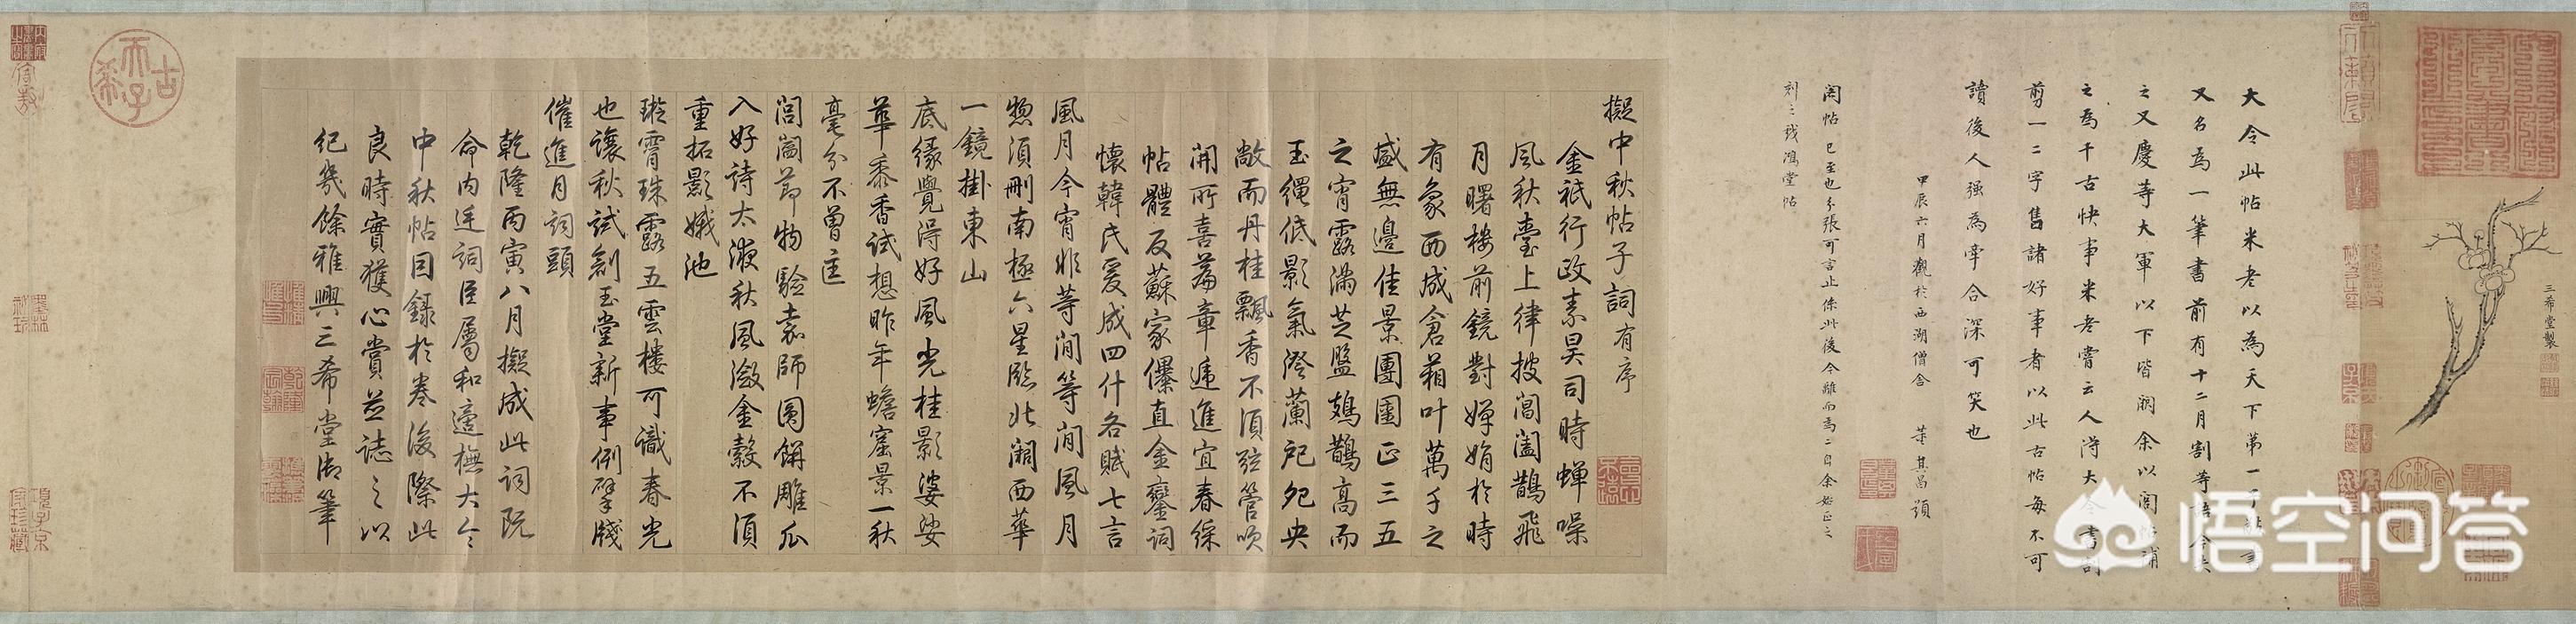 三希堂製
大令此帖米老以為天下第一子敬書
又名為一筆書前有十二月割等語今失
之又慶等大軍以下皆闕余以閣帖補
之為千古快事米老嘗云人得大令書割
剪一二字售諸好事者以此古帖每不可
讀後人强為牽合深可笑也
甲辰六月觀於西湖僧舍 董其昌題
閣帖已至也分張可言止係此後今離而為二自余始正之
刻之戏鴻堂帖
擬中秋帖子詞有序
金祇行政素昊司時蟬噪
風秋臺上律披閶闔鵲飛
月曙樓前鏡對嬋娟於時
有象西成倉箱叶萬千之
盛無邊佳景團圞正三五
之宵露滿芝盤鳷鵲高而
玉繩低影氣澄蘭戺夗央
敞而丹桂飄香不須弦管吹
開所喜篇章遞進宜春綵
帖體反蘇家儤直金鑾詞
懷韓氏爰成四什各賦七言
風月今宵非等閒等閒風月
惣須刪南極六星臨北闕西華
一鏡掛東山
底緣覺得好風光桂影婆娑
華黍香試想昨年蟾窟景一秋
毫分不曾
閶闔節物驗袁師圓餅雕瓜
入好詩太液秋風潋金縠不須
重拓影娥池
璇霄珠露五雲樓可識春光
也讓秋試劍玉堂新事例擘牋
催進月詞頭
乾隆丙寅八月擬成此詞既
命内廷詞臣屬和適橅大令
中秋帖因錄於卷後際此
良時實獲心賞並誌之以
紀幾餘雅興三希堂御筆
古希天子
悟空问答